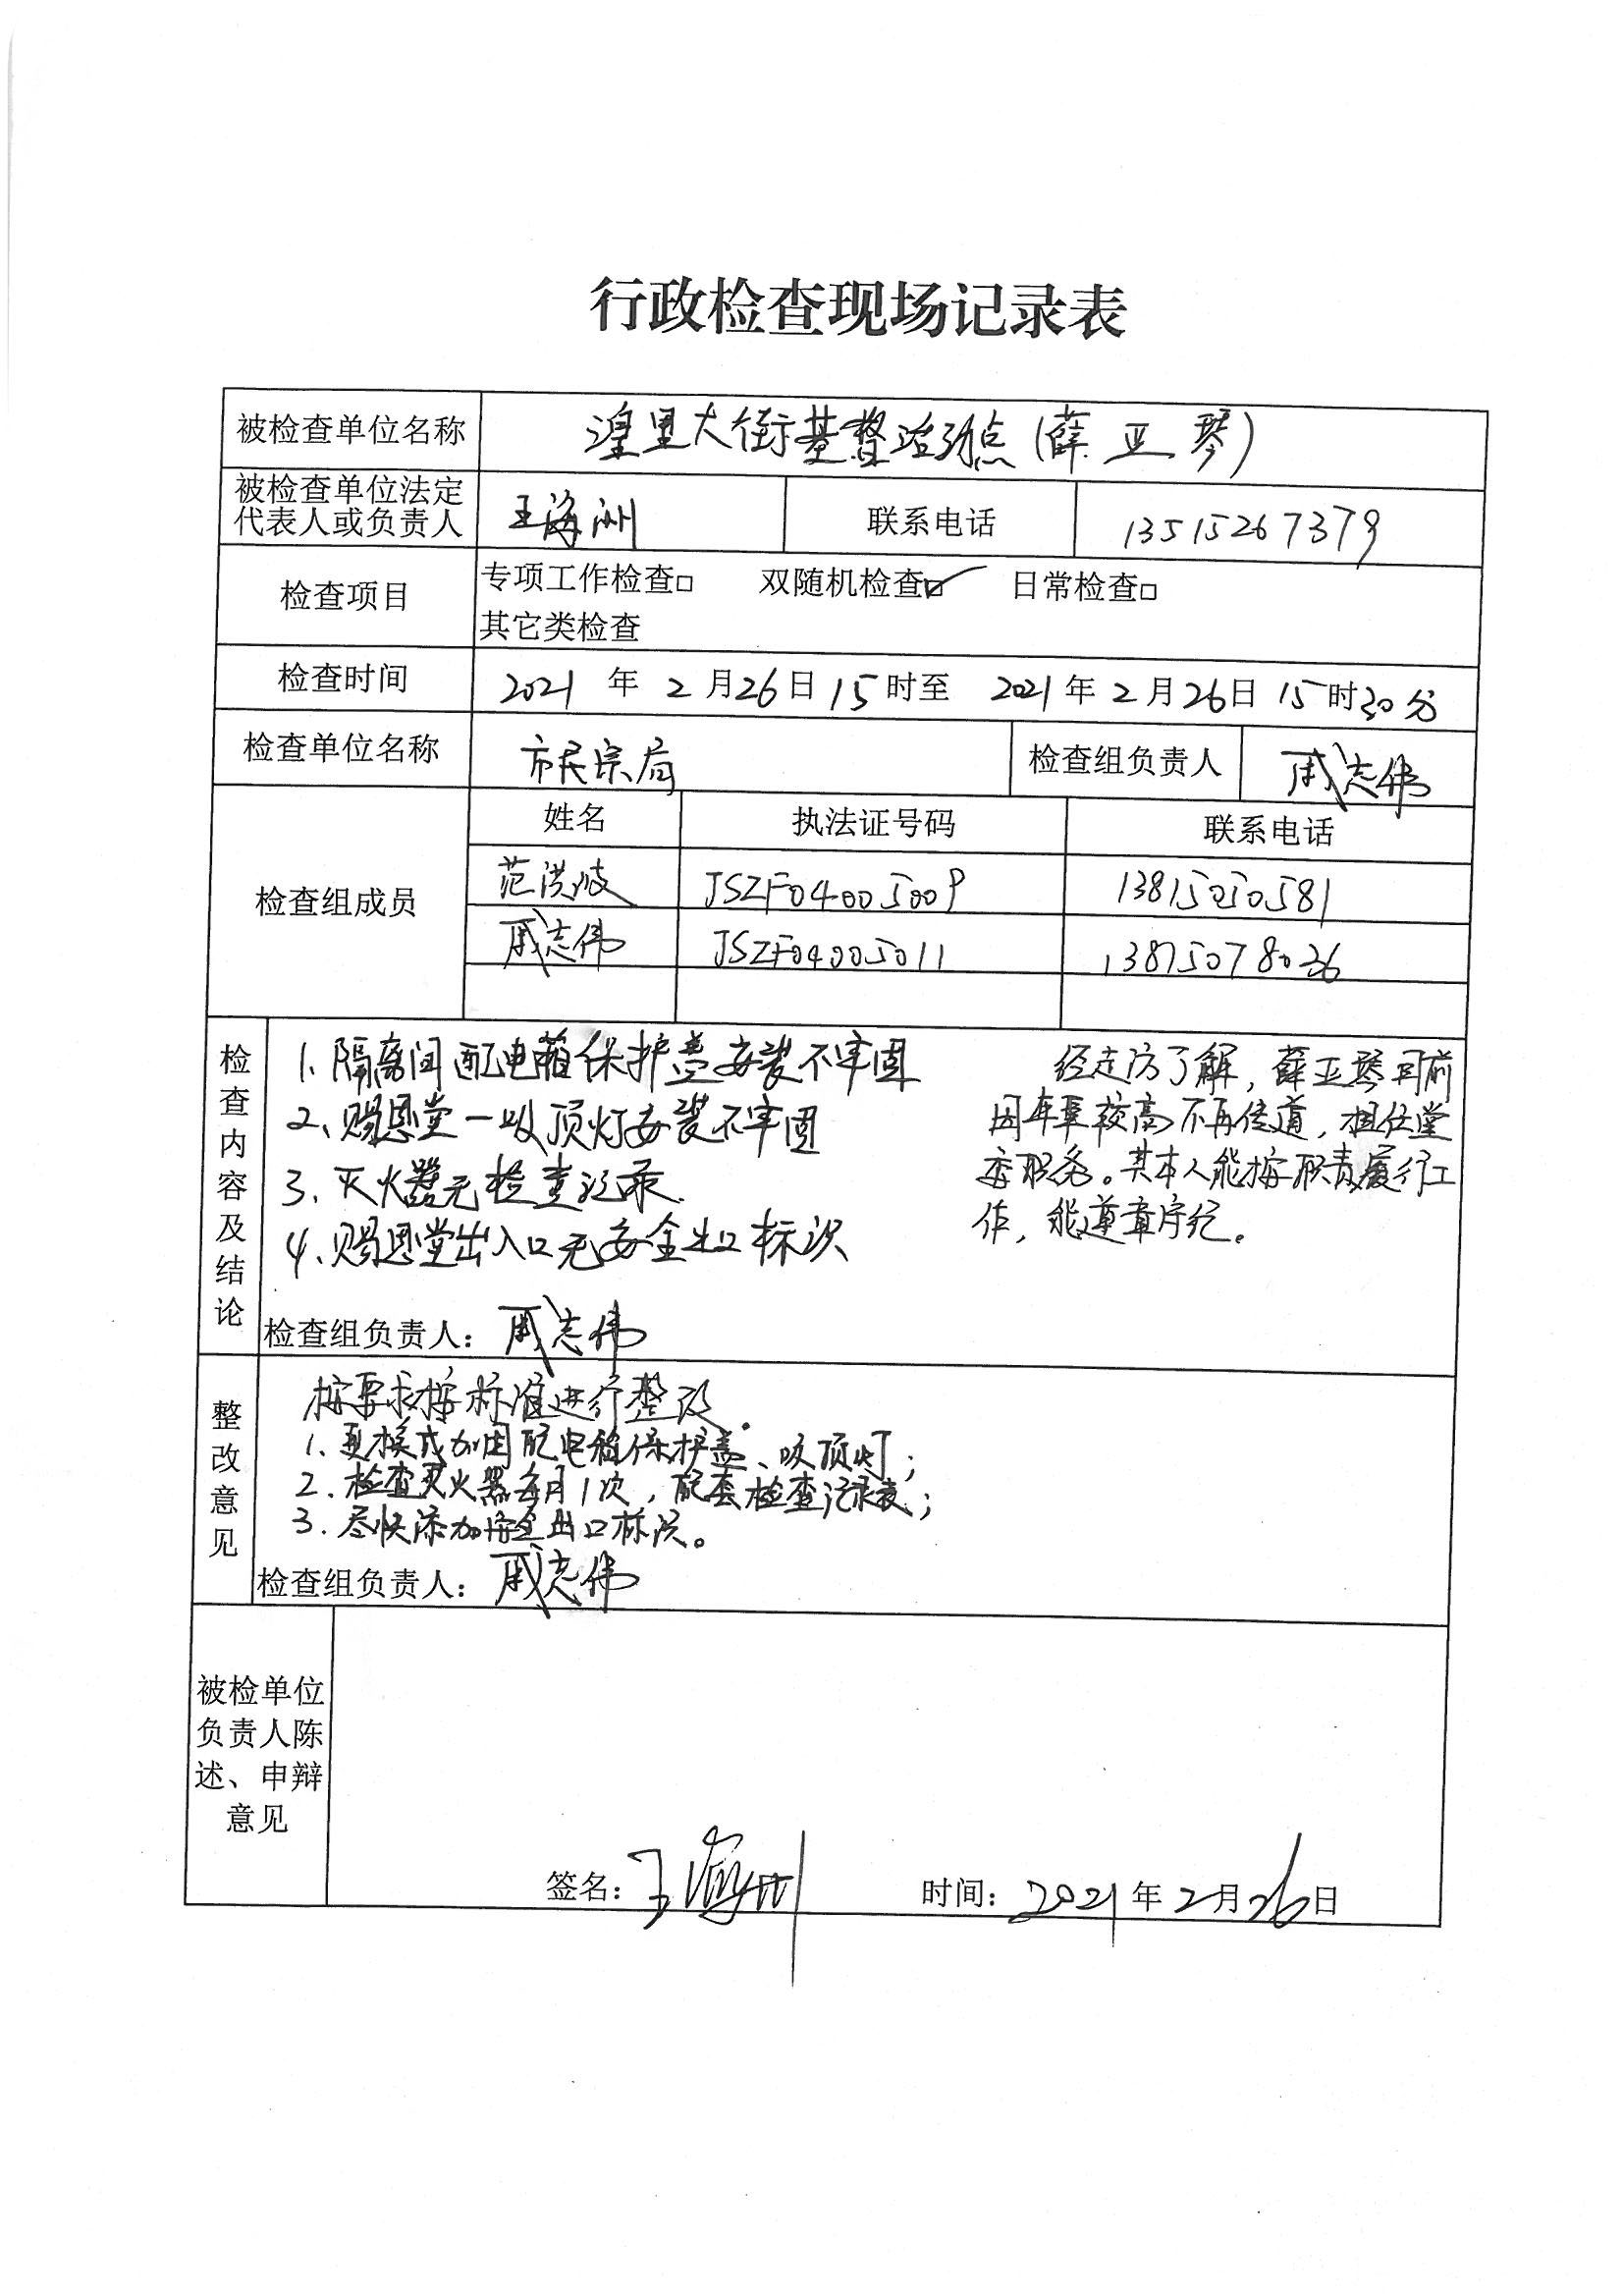 行政检查现场记录表
被检查单位名称 湟里大街基督活动点(薛亚琴)
被检查单位法定代表人或负责人 王海洲 联系电话 13515267379
检查项目 专项工作检查□ 双随机检查☑ 日常检查□
其它类检查
检查时间 2021年2月26日15时至2021年2月26日15时30分
检查单位名称 市民宗局 检查组负责人 周志伟
检查组成员 姓名 执法证号码 联系电话
范洪波 JSZF04005009 13815050581
周志伟 JSZF04005011 13875078036
检查内容及结论
1、隔离间配电箱保护盖安装不牢固
2、赐恩堂一吸顶灯安装不牢固
3、灭火器无检查记录
4、赐恩堂出入口无安全出口标识
经走访了解，薛亚琴目前
因年事较高不再传道，担任堂
委职务。其本人能按职责履行工
作，能遵章守纪。
检查组负责人：周志伟
整改意见
按要求按标准进行整改.
1.更换或加固配电箱保护盖、吸顶灯；
2.检查灭火器每月1次，配套检查记录表；
3.尽快添加安全出口标识。
检查组负责人：周志伟
被检单位负责人陈述、申辩意见
签名：王海洲 时间：2021年2月26日